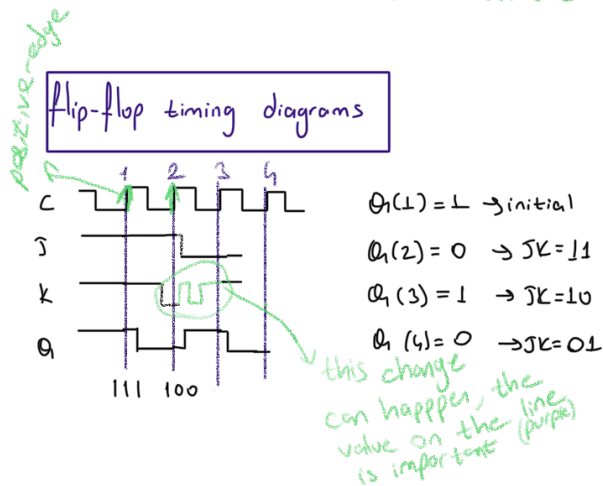 positive-edge
flip-flop timing diagrams
1 2 3 4
C
J
K
Q
111 100
Q(1) = 1 → initial
Q(2) = 0 → JK = 11
Q(3) = 1 → JK = 10
Q(4) = 0 → JK = 01
this change
can happper, the
value on the line
is important (purple)